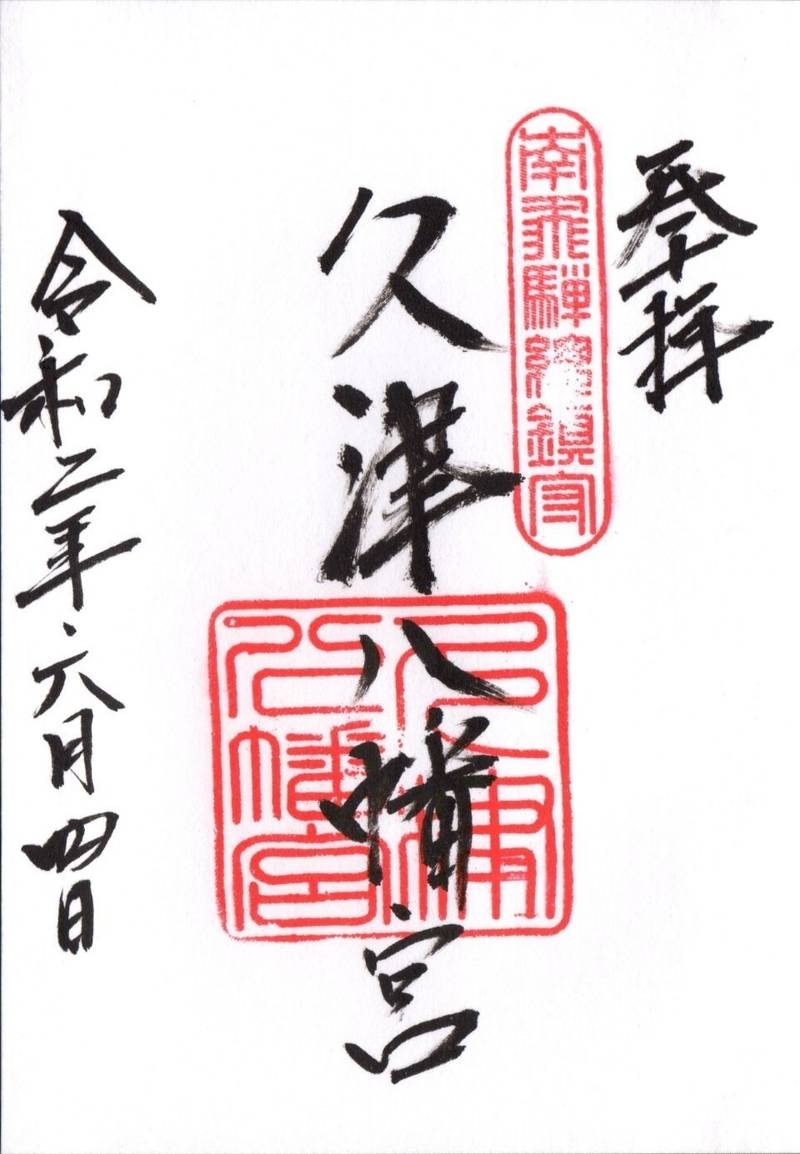 奉拝
南飛騨總鎮守
久津八幡宮
久津八幡宮
令和二年六月四日